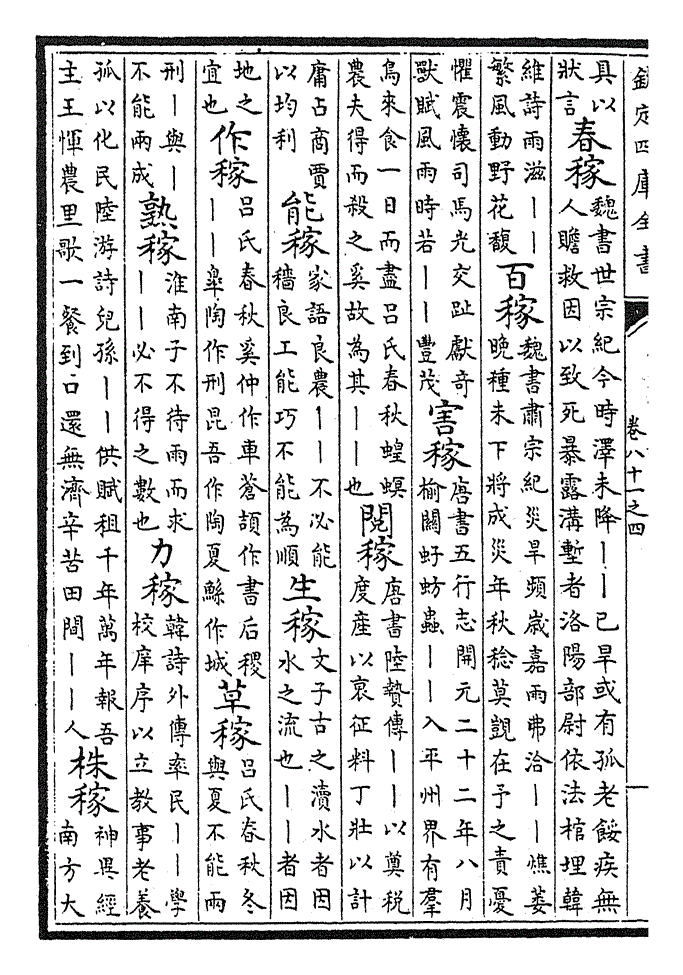 欽定四庫全書
卷八十一之四
具以
狀言
春稼
魏書世宗紀今時澤未降——已旱或有孤老餒疾無
人贍救因以致死暴露溝塹者洛陽部尉依法棺埋韓
維詩雨滋——
繁風動野花馥
百稼
魏書肅宗紀災旱頻歲嘉雨弗洽——燋萎
晚種未下將成災年秋稔莫覬在予之責憂
懼震懷司馬光交趾獻奇
獸賦風雨時若——豐茂
害稼
唐書五行志開元二十二年八月
榆關虸蚄蟲——入平州界有羣
鳥來食一日而盡呂氏春秋蝗螟
農夫得而殺之奚故為其——也
閱稼
唐書陸贄傳——以奠稅
度產以裒征料丁壯以計
庸占商賈
以均利
能稼
家語良農——不必能
穡良工能巧不能為順
生稼
文子古之瀆水者因
水之流也——者因
地之
宜也
作稼
呂氏春秋奚仲作車蒼頡作書后稷
——皋陶作刑昆吾作陶夏鯀作城
草稼
呂氏春秋冬
與夏不能兩
刑—與—
不能兩成
熟稼
淮南子不待雨而求
——必不得之數也
力稼
韓詩外傳率民——學
校庠序以立教事老養
孤以化民陸游詩兒孫——供賦租千年萬年報吾
主王惲農里歌一餐到口還無濟辛苦田間——人
株稼
神異經
南方大